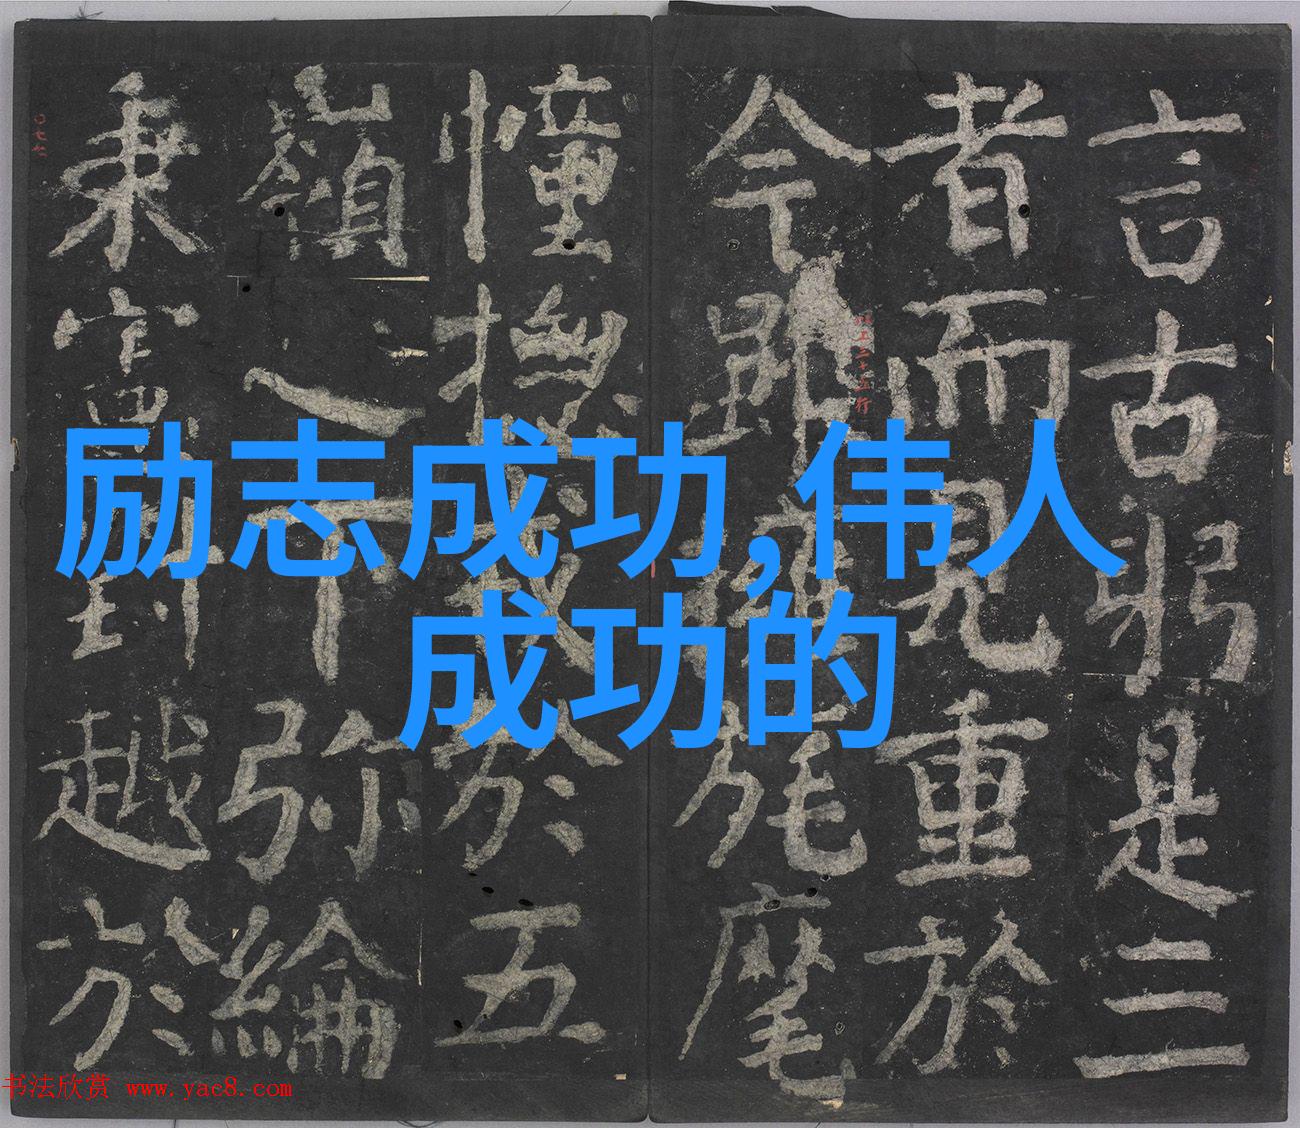 励志成功,伟人
成功的
言古弱是三
者而見重於
今麾
幢摠於五
嶺之下弥綸
秉對越於
书法欣赏 www.yac8.com